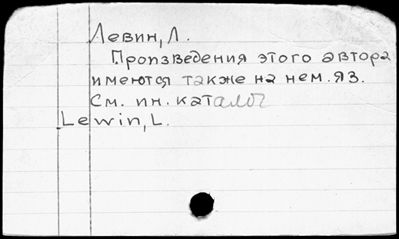 Левин, Л.
Произведения этого автора
имеются также на нем. яз.
См. ин. каталог
Lewin, L.